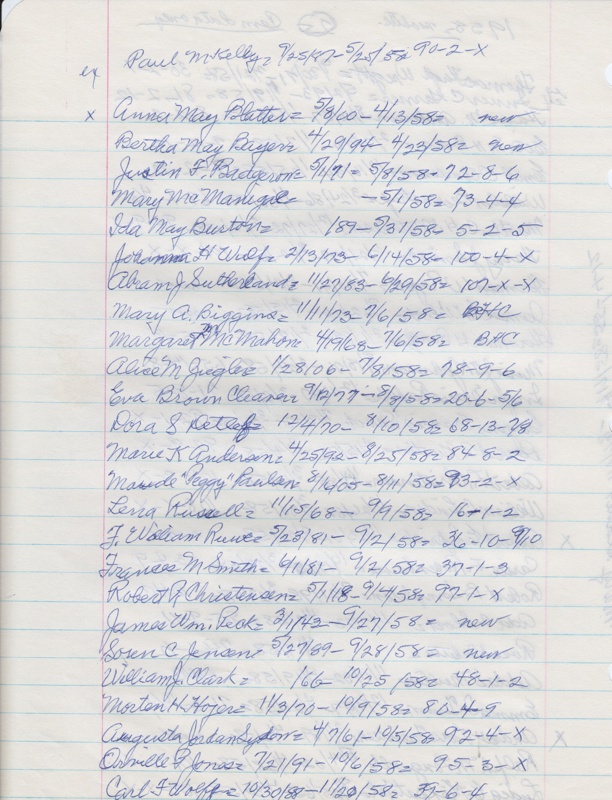 ex Paul McKelly = 9/25/87-5/25/58 = 90-2-X
x Anna May Blatter = 5/8/00-4/13/58 = new
Bertha May Bayer = 4/29/94-4/22/58 = new
Justin F. Badgeron = 5/1/71 = 5/8/58 = 72-8-6
Mary McManigal = -5/1/58 = 73-4-4
Ida May Burton = /89-5/31/58 = 5-2-5
Johanna H Wolf = 2/13/73-6/14/58 = 100-4-X
Abram J Sutherland = 11/27/83-6/29/58 = 107-X-X
Mary A. Biggins = 11/11/73-7/6/58 = BHC
Margaret McMahon = 4/19/68-7/6/58 = BHC
Alice M Jiegler = 1/28/06-7/8/58 = 78-9-6
Eva Brown Cleaver 9/12/77-8/8/58 = 20-6-5/6
Dora S Detlef = 12/4/70-8/10/58 = 68-13-7/8
Marie K Andersen = 4/25/92-8/25/58 = 84-8-2
Maude "Peggy" Paulsen = 8/6/05-8/11/58 = 93-2-X
Lena Russell = 11/15/68-9/9/58 = 16-1-2
F. William Ruwe = 5/23/81-9/2/58 = 36-10-9/10
Frances M Smith = 6/1/81-9/2/58 = 37-1-3
Robert P. Christensen = 5/1/18-9/4/58 = 97-1-X
James Wm. Peck = 3/1/42-9/27/58 = new
Soren C Jensen = 5/27/89-9/28/58 = new
William J. Clark = /66-10/25/58 = 48-1-2
Morten H. Hojer = 11/3/70-10/9/58 = 80-4-9
Augusta Jordan Sydom = 4/7/61-10/5/58 = 92-4-X
Orville P. Jones = 7/21/91-10/6/58 = 95-3-X
Carl F Wolff = 10/30/88-11/20/58 = 37-6-4